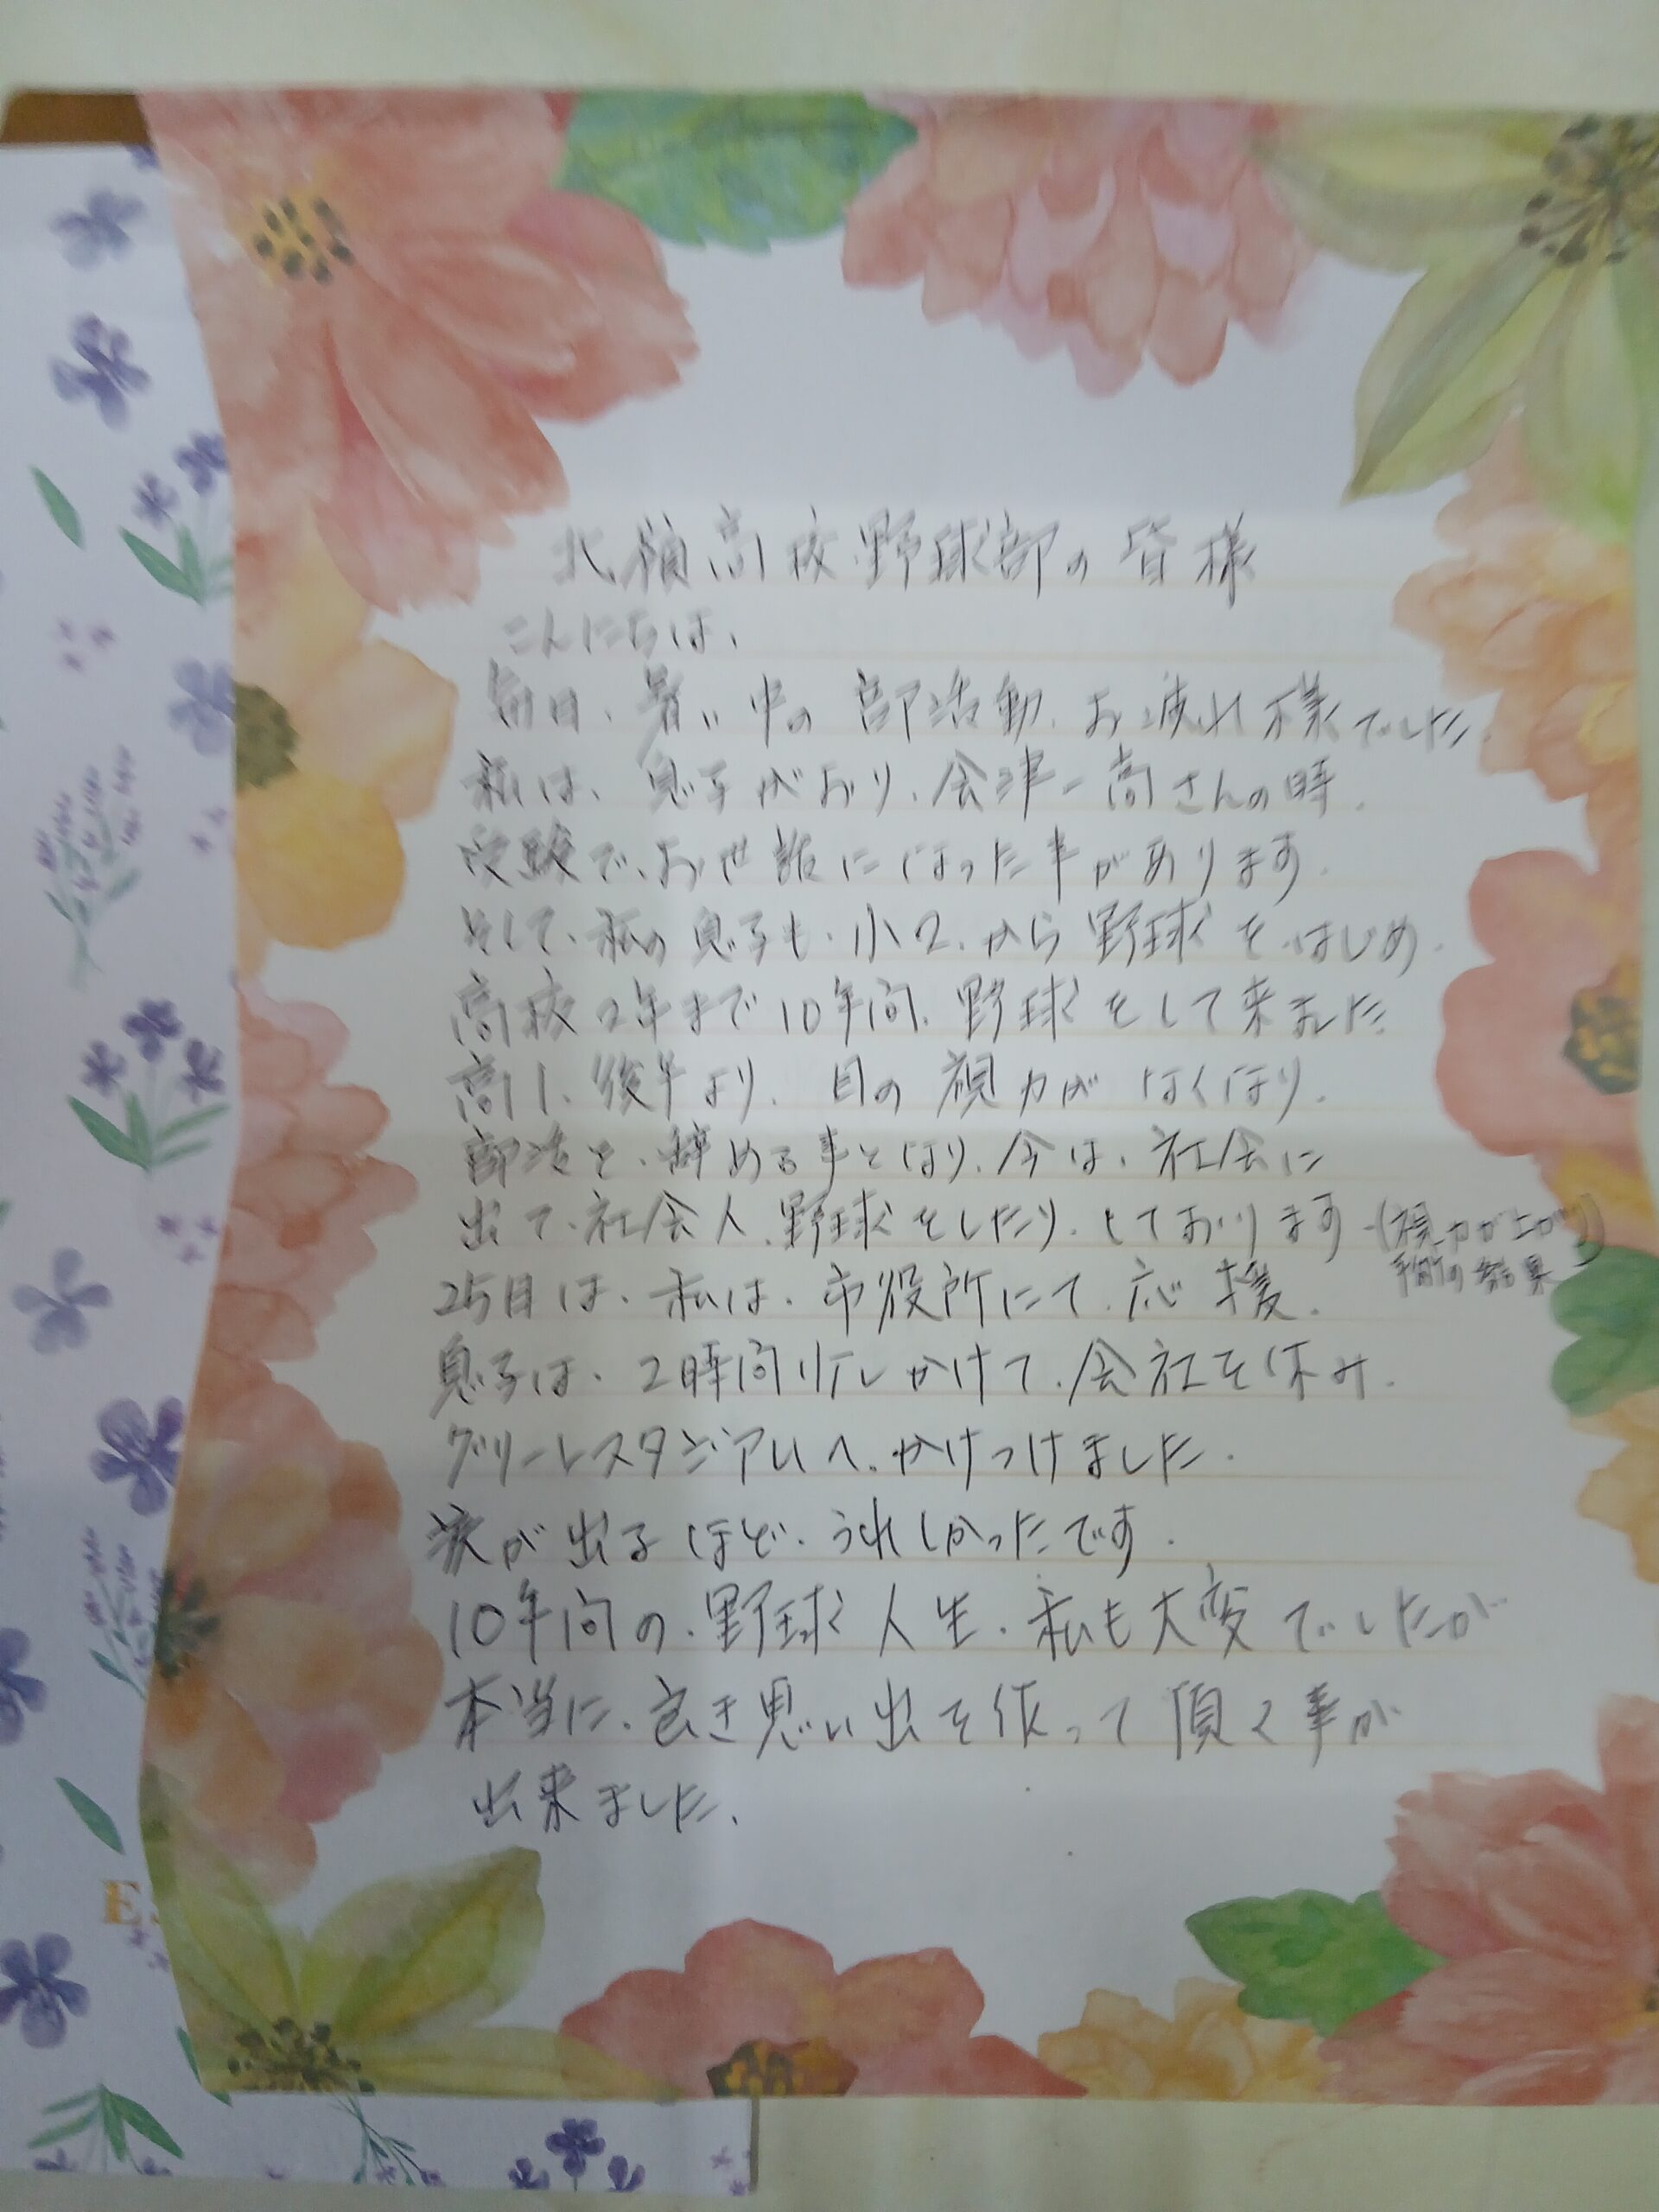 北嶺高校野球部の皆様
こんにちは、
毎日、暑い中の部活動、お疲れ様でした。
私は、息子がおり、会津一高さんの時、
受験で、お世話になった事があります。
そして、私の息子も、小2、から野球を、はじめ、
高校2年まで10年間、野球をして来ました。
高1、後半より、目の視力がなくなり、
部活を、辞める事となり、今は、社会に
出て、社会人、野球をしたり、しております。(視力が上がり)
手術の結果
25日は、私は、市役所にて、応援、
息子は、2時間かけて、会社を休み、
グリーンスタジアムへ、かけつけました。
涙が出るほど、うれしかったです。
10年間の、野球人生、私も大変でしたが
本当に、良き思い出を作って頂く事が
出来ました、
E